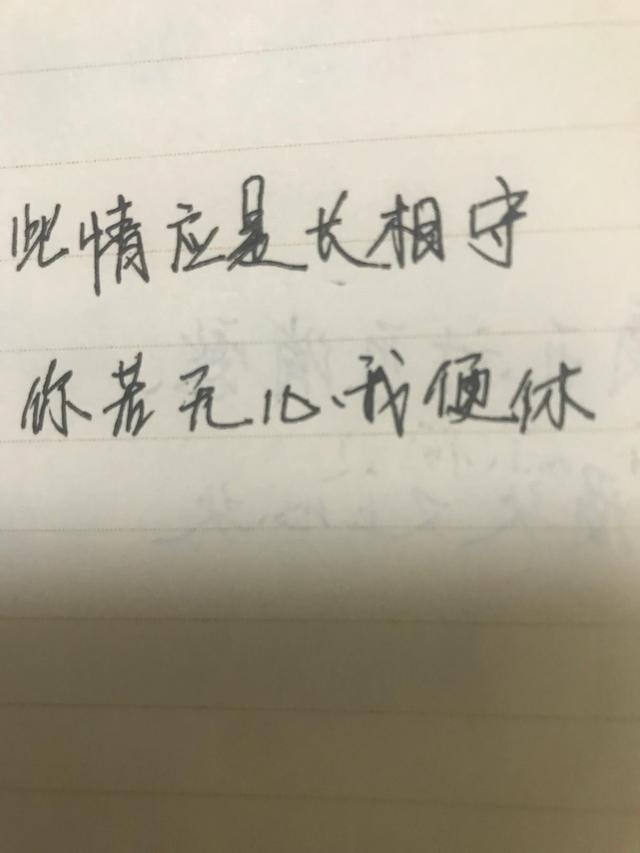 此情应是长相守
你若无心我便休